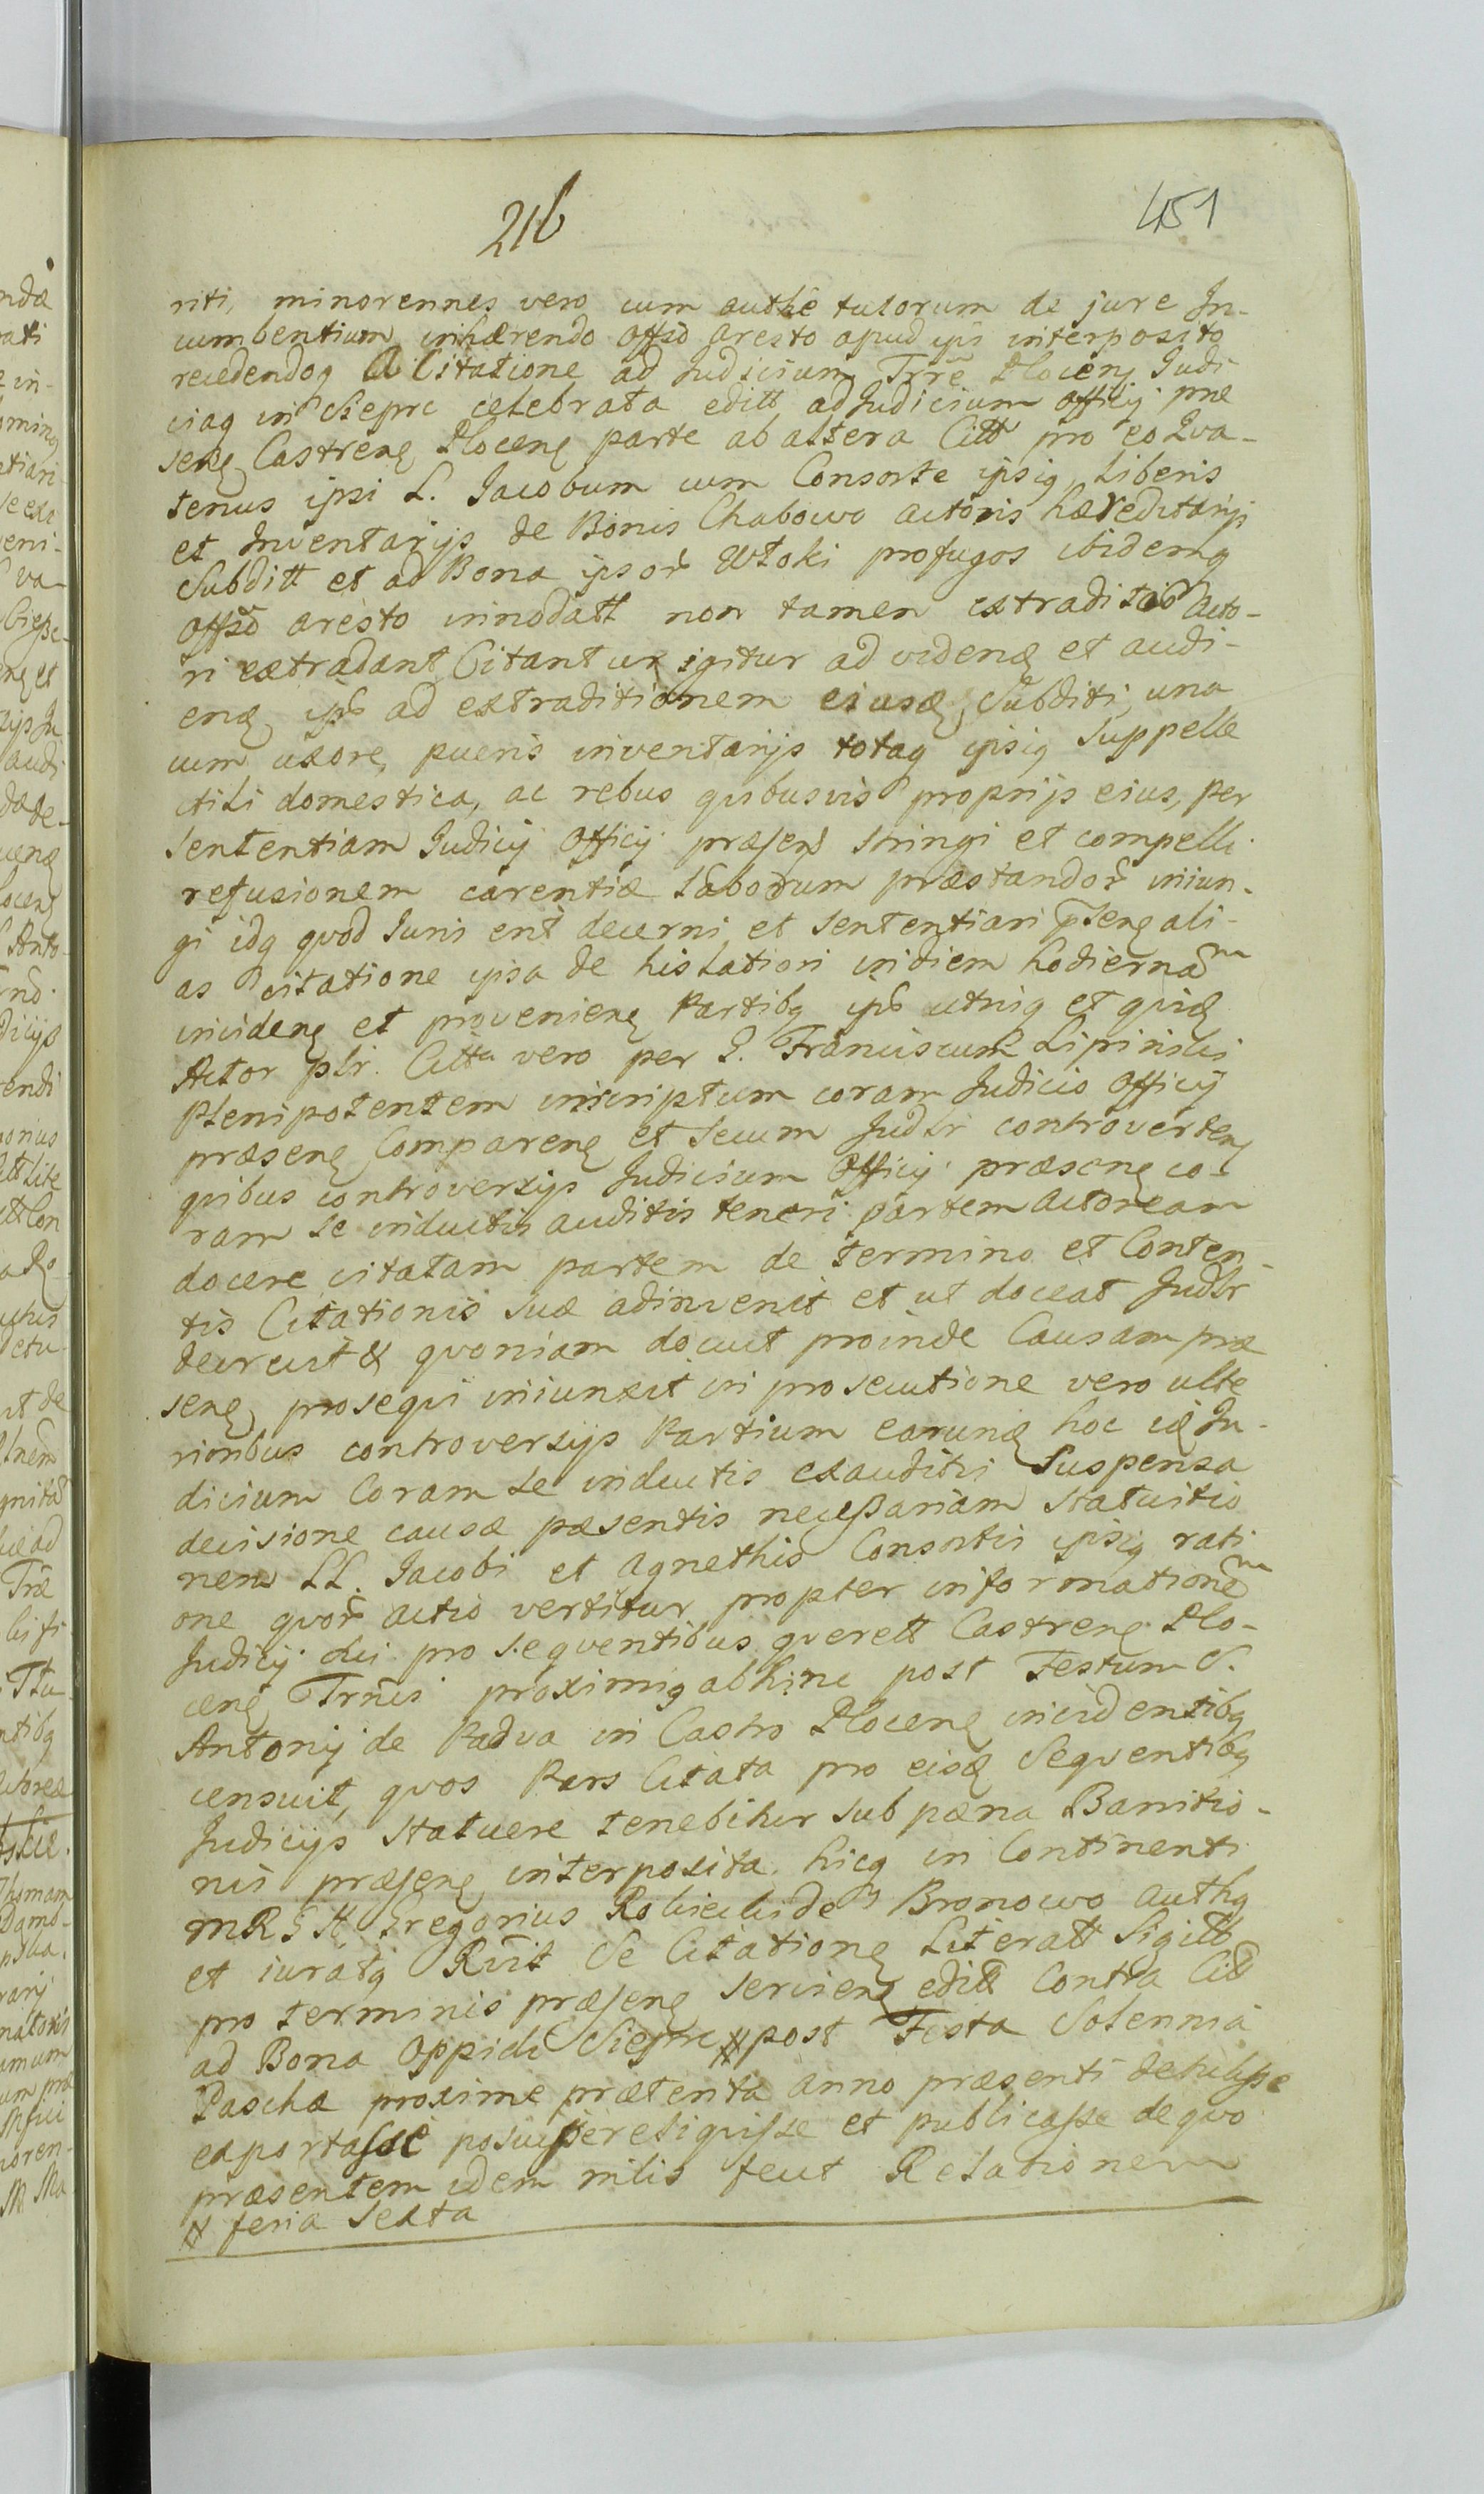 216
451
riti, minorennes vero cum authe tutorum de jure In-
cumbentium inhærendo offŏ aresto apud ips interposito
recedendoq A Citatione ad Judicium Trre Plocenȩ Judi
ciaq in Siepre celebrata editt ad Judicium officij præ
senȩ Castrenȩ Plocenȩ parte ab altera Citt pro eo Qva-
tenus ipsi L. Jacobum cum Consorte ipsiq Liberis
et Inventarijs de Bonis Chabowo actoris hæreditarijs
Subditt et ad Bona ipsor̃ Wtoki profugos ibidemq
offsŏ aresto innodatt non tamen extraditŏ Acto-
ri extradant Citantur igitur ad videnȩ et audi-
enȩ ips ad extraditionem eiusȩ Subditi, una
cum uxore, pueris inventarijs totaq ipsiq Suppelle
ctili domestica, ac rebus qvibusvis proprijs eius, per
Sententiam Judicij Officij præsens stringi et compelli
refusionem carentiæ laborum præstandor̃ iniun-
gi idq qvod Juris erit decerni et Sententiari pñsenȩ ali-
as citatione ipsa de his latiori in diem hodiernam
incidenȩ et provenienȩ Partibq ips utriq et qvidȩ
Actor plr. Citta vero per G. Franciscum Lipinski
Plenipotentem inscriptum coram Judicio Officij
præsenȩ Comparenȩ et Secum Judlr controvertenȩ
qvibus controversijs Judicium Officij præsenȩ co-
ram se inductis auditis teneri partem actoream
docere citatam partem de termino et Conten
tis Citationis suæ adinvenit et ut doceat Judlr
decrevit & qvoniam docuit proinde Causam præ
senȩ prosequi iniunxit in prosecutione vero ulte
rioribus controversijs Partium earunȩ hoc idȩ Ju-
dicium Coram se inductis exauditis Suspensa
decisione causæ pæsentis necessariam Statuitio
nem LL. Jacobi et Agnethis Consortis ipsiq rati
one qvor̃ actio vertitur propter informationem
Judicij sui pro seqventibus qverett Castrenȩ Plo-
cenȩ Trnis proximiq abhinc post Festum S.
Antonij de Padva in Castro Plocenȩ incidentibq
censuit, qvos Pars Citata pro eisȩ Seqventibq
Judicijs Statuere tenebitur sub pæna Banitio-
nis præsenȩ interposita. hicq in Continenti
MRGH. Gregorius de Bronowo authq
et iuratq Rvit Se Citationȩ Literatt Sigillt
pro terminis præsenȩ servienȩ editt Contra Citt
ad Bona Oppidi Sieprc # post Festa Solennia
Paschæ proxime præterita anno præsenti detulisse
exportasse posuisse reliquisse et publicasse de qvo
præsentem idem mlis fecit Relationem
# feria Sexta